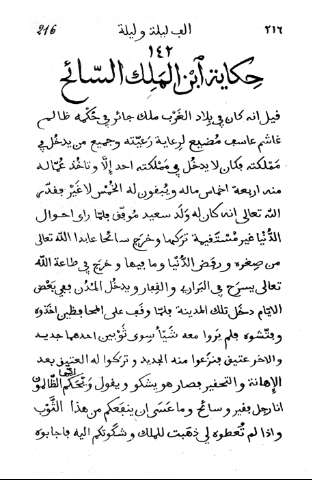 216 الف ليلة وليلة ٢١٦
١٤٢
حكاية ابن الملك السائح
فيل انه كان في بلاد الغرب ملك جائر في حكمه ظالم
غاشم عاسف مضيع لرعاية رعيته وجميع من يدخل في
مملكته فكان لا يدخل في مملكته احد إلا وتاخذ عماله
منه اربعة اخماس ماله ويبفون له الخمس لا غير بفدر
الله تعالى انه كان له ولد سعيد موفق فلما راى احوال
الدنيا غير مستفيمة تركها وخرج سائحا عابدا الله تعالى
من صغره ورفض الدنيا وما فيها وخرج في طاعة الله
تعالى يسرح في البراري والفبار ويدخل المدن ففي بعض
الايام دخل تلك المدينة فلما وفف على المحافظين اخذوه
وفتشوه فلم يروا معه شيأ سوى ثوبين احدهما جديد
والاخر عتيق فنزعوا منه الجديد وتركوا له العتيق بعد
الإهانة والتحفير فصار هو يشكو ويفول ويحكم ايها الظالمون
انا رجل ففير وسائح وما عسى ان ينفعكم من هذا الثوب
واذا لم تعطوه لي ذهبت للملك وشكوتكم اليه فاجابوه